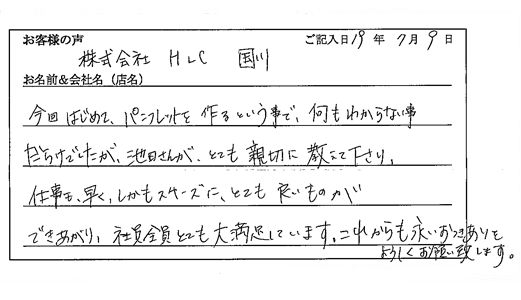 お客様の声 ご記入日 19 年 7月 9 日
株式会社 HLC 国川
お名前&会社名(店名)
今回はじめて、パンフレットを作るという事で、何もわからない事
だらけでしたが、池田さんが、とても親切に教えて下さり、
仕事も、早く、しかもスムーズに、とても良いものが
できあがり、社員全員とても大満足しています。これからも永いおつきあいを
よろしくお願い致します。